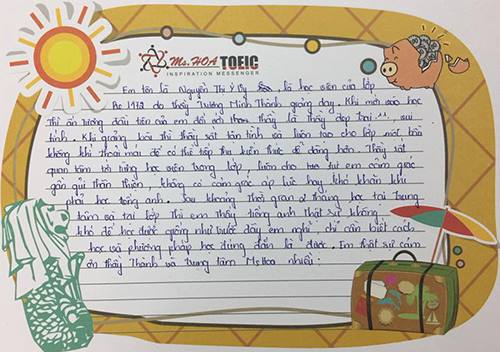 Ms.HOA TOEIC
INSPIRATION MESSENGER
Em tên là Nguyễn Thị Ý Vy, là học viên của lớp
Pre 1472 do thầy Trương Minh Thành giảng dạy. Khi mới vào học
thì ấn tượng đầu tiên của em đối với thầy là thầy đẹp trai ^^, vui
tính. Khi giảng bài thì thầy rất tận tình và luôn tạo cho lớp một bầu
không khí thoải mái để có thể tiếp thu kiến thức dễ dàng hơn. Thầy rất
quan tâm tới từng học viên trong lớp, luôn cho em cảm giác
gần gũi thân thiện, không có cảm giác áp lực hay khó khăn khi
phải học tiếng anh. Sau khoảng thời gian 2 tháng học tại trung
tâm và tại lớp thì em thấy tiếng anh thật sự không
khó để học được giống như trước đây em nghĩ, chỉ cần biết cách
học và phương pháp học đúng đắn là được. Em thật sự cảm
ơn thầy Thành và trung tâm Ms Hoa nhiều!